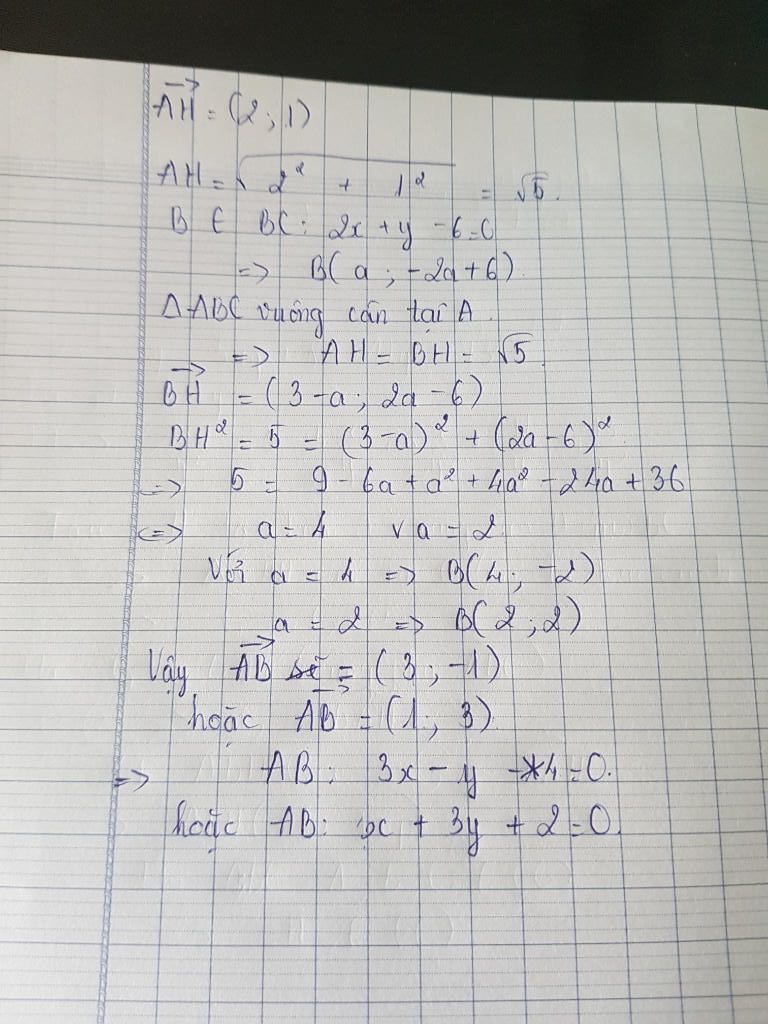 AH→ = (2 ; 1)
AH = √(2² + 1²) = √5.
B ∈ BC : 2x + y - 6 = 0
=> B( a ; -2a + 6 ).
Δ ABC vuông cân tại A.
=> AH = BH = √5.
BH→ = ( 3 - a ; 2a - 6 )
BH² = 5 = (3 - a)² + (2a - 6)²
=> 5 = 9 - 6a + a² + 4a² - 24a + 36
<=> a = 4 v a = 2
Với a = 4 => B(4 ; -2)
a = 2 => B( 2 ; 2)
Vậy AB→ = ( 3 ; -1)
hoặc AB→ = (1 ; 3)
=> AB : 3x - y - 4 = 0.
hoặc AB : x + 3y + 2 = 0.